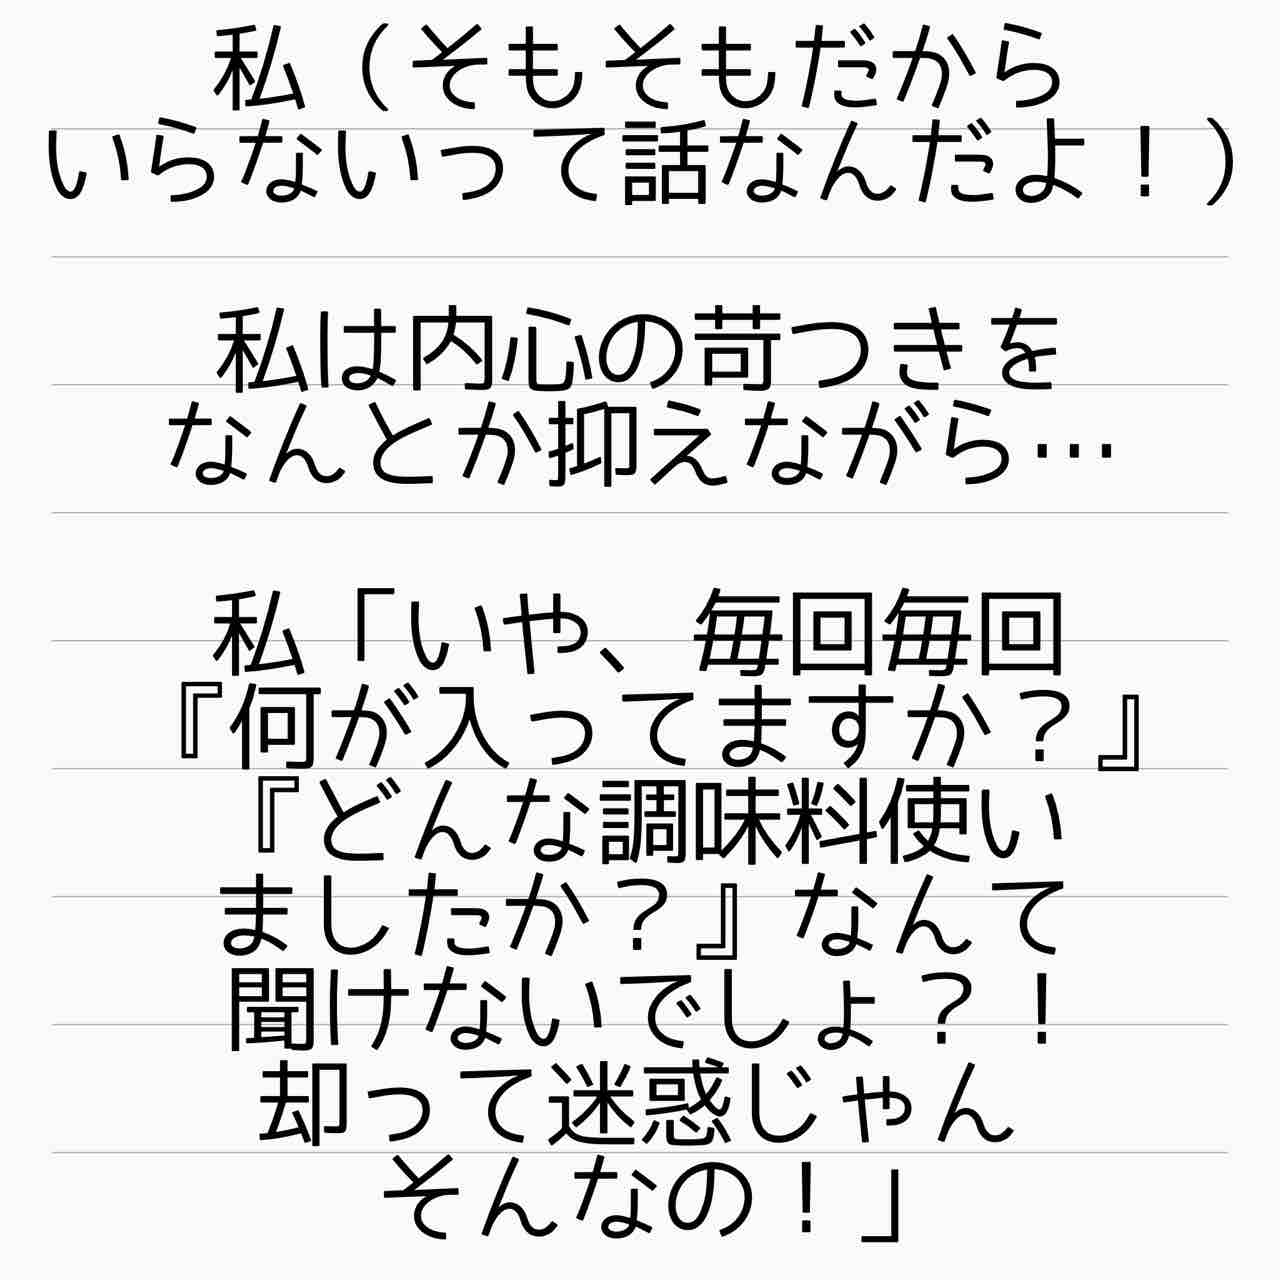 私（そもそもだから
いらないって話なんだよ！）
私は内心の苛つきを
なんとか抑えながら…
私「いや、毎回毎回
『何が入ってますか？』
『どんな調味料使い
ましたか？』なんて
聞けないでしょ？！
却って迷惑じゃん
そんなの！」